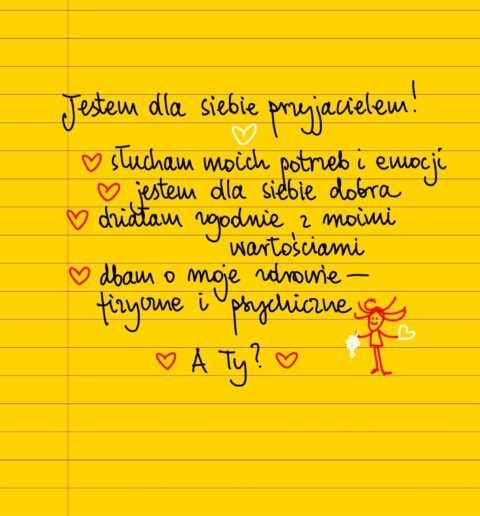 Jestem dla siebie przyjacielem!
słucham moich potrzeb i emocji
jestem dla siebie dobra
działam zgodnie z moimi
wartościami
dbam o moje zdrowie –
fizyczne i psychiczne
A Ty?